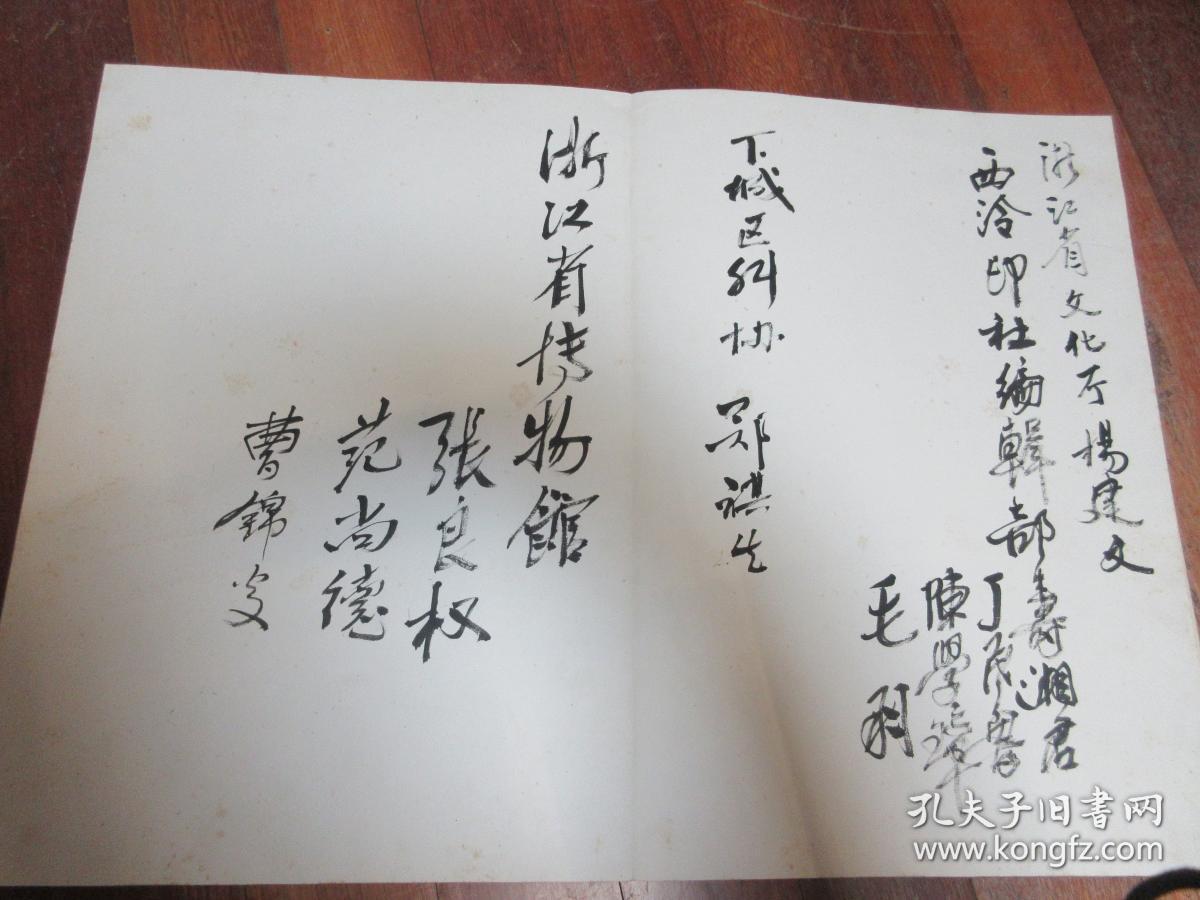 浙江省文化厅 楊建文
西泠印社编輯部 壽湘君
丁茂魯
陳學璋
毛羽
下城区科协 郑祺生
浙江省博物館
張良权
范尚德
曹錦炎
孔夫子旧書网
www.kongfz.com